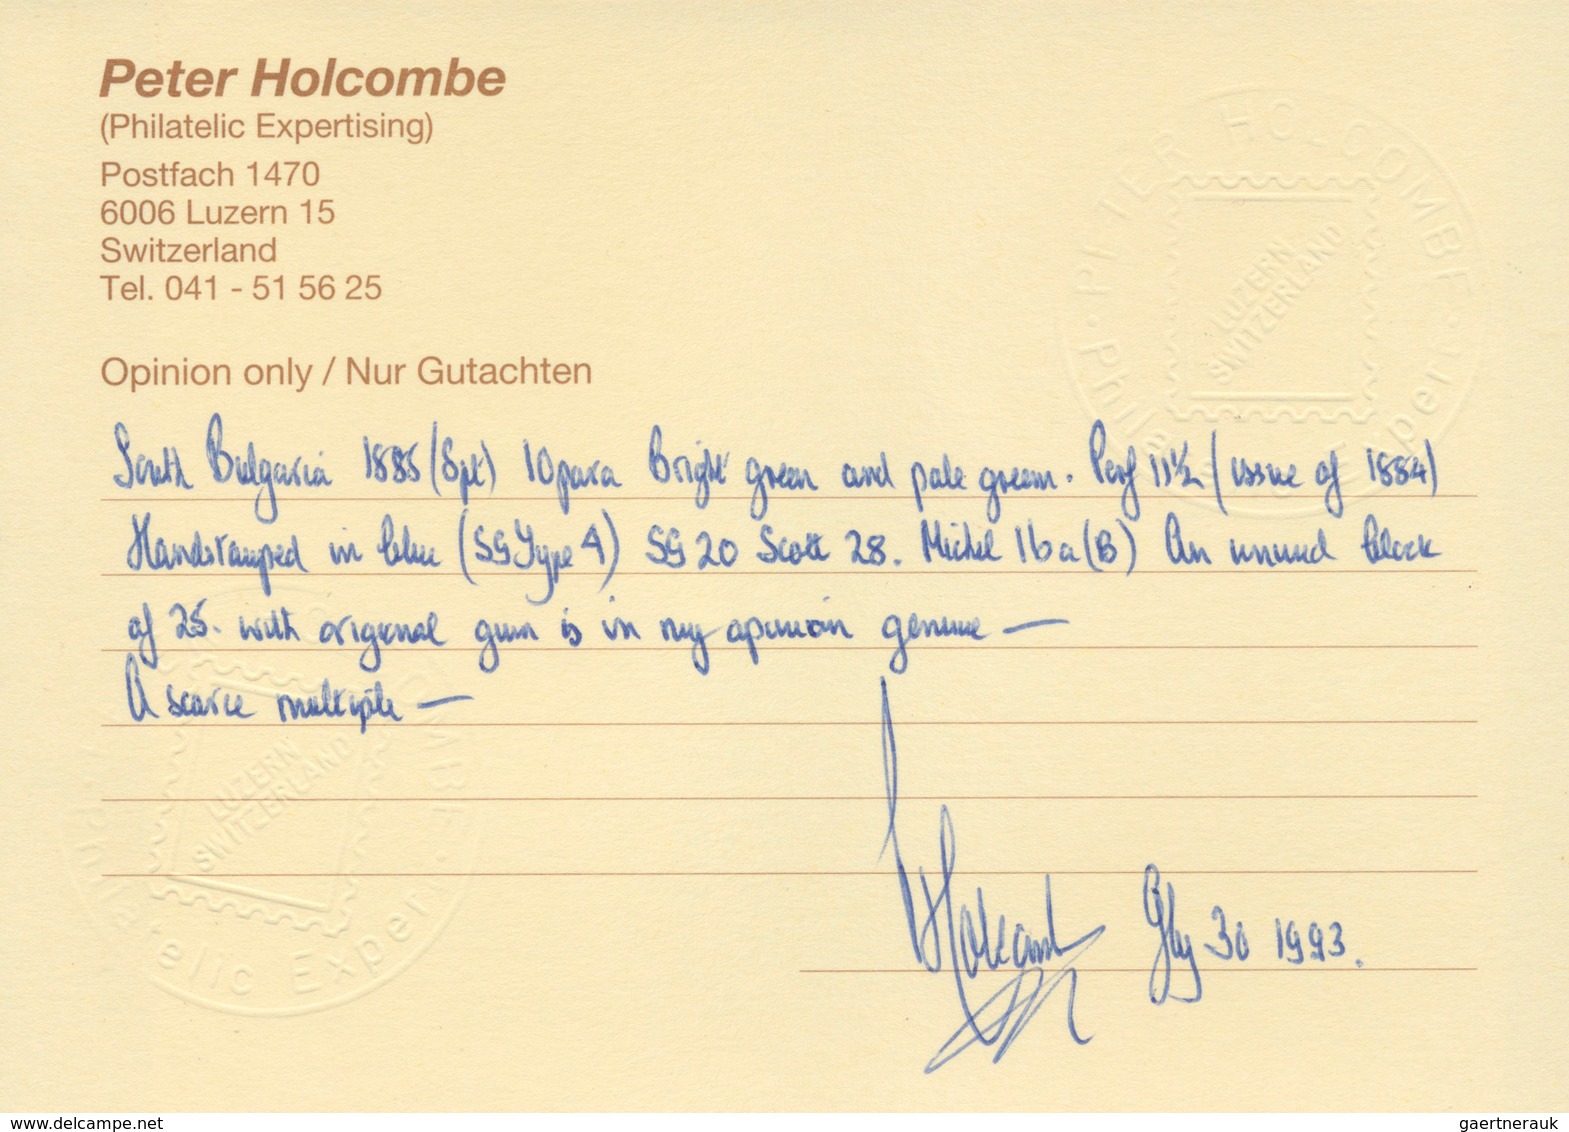 Peter Holcombe
(Philatelic Expertising)
Postfach 1470
6006 Luzern 15
Switzerland
Tel. 041 - 51 56 25
PETER HOLCOMBE
LUZERN
SWITZERLAND
Opinion only / Nur Gutachten
South Bulgaria 1885 (Spt) 10 para Bright green and pale green. Perf 11½ (issue of 1884)
Handstamped in blue (SG Type 4) SG 20 Scott 28. Michel 16a (B) An unused block
of 25. with original gum is in my opinion genuine —
A scarce multiple —
LUZERN
SWITZERLAND
Holcombe July 30 1993.
www.delcampe.net
gaertnerauk